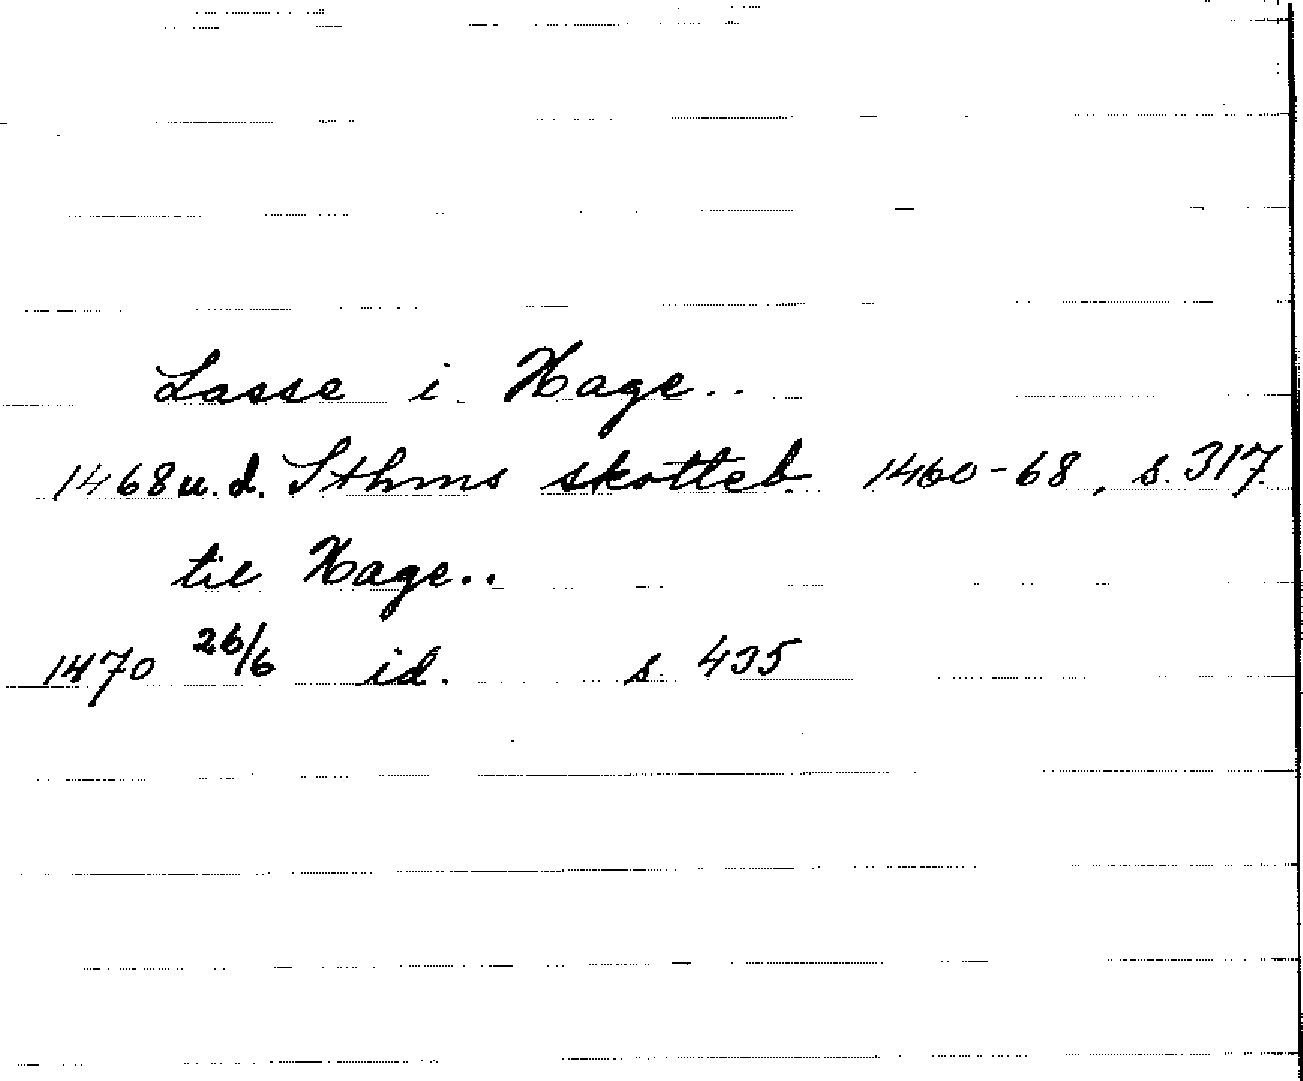 Lasse i Hage..
1468 u.d. Sthms skotteb 1460-68, s. 317.
til Hage..
1470 26/6 id. s. 435